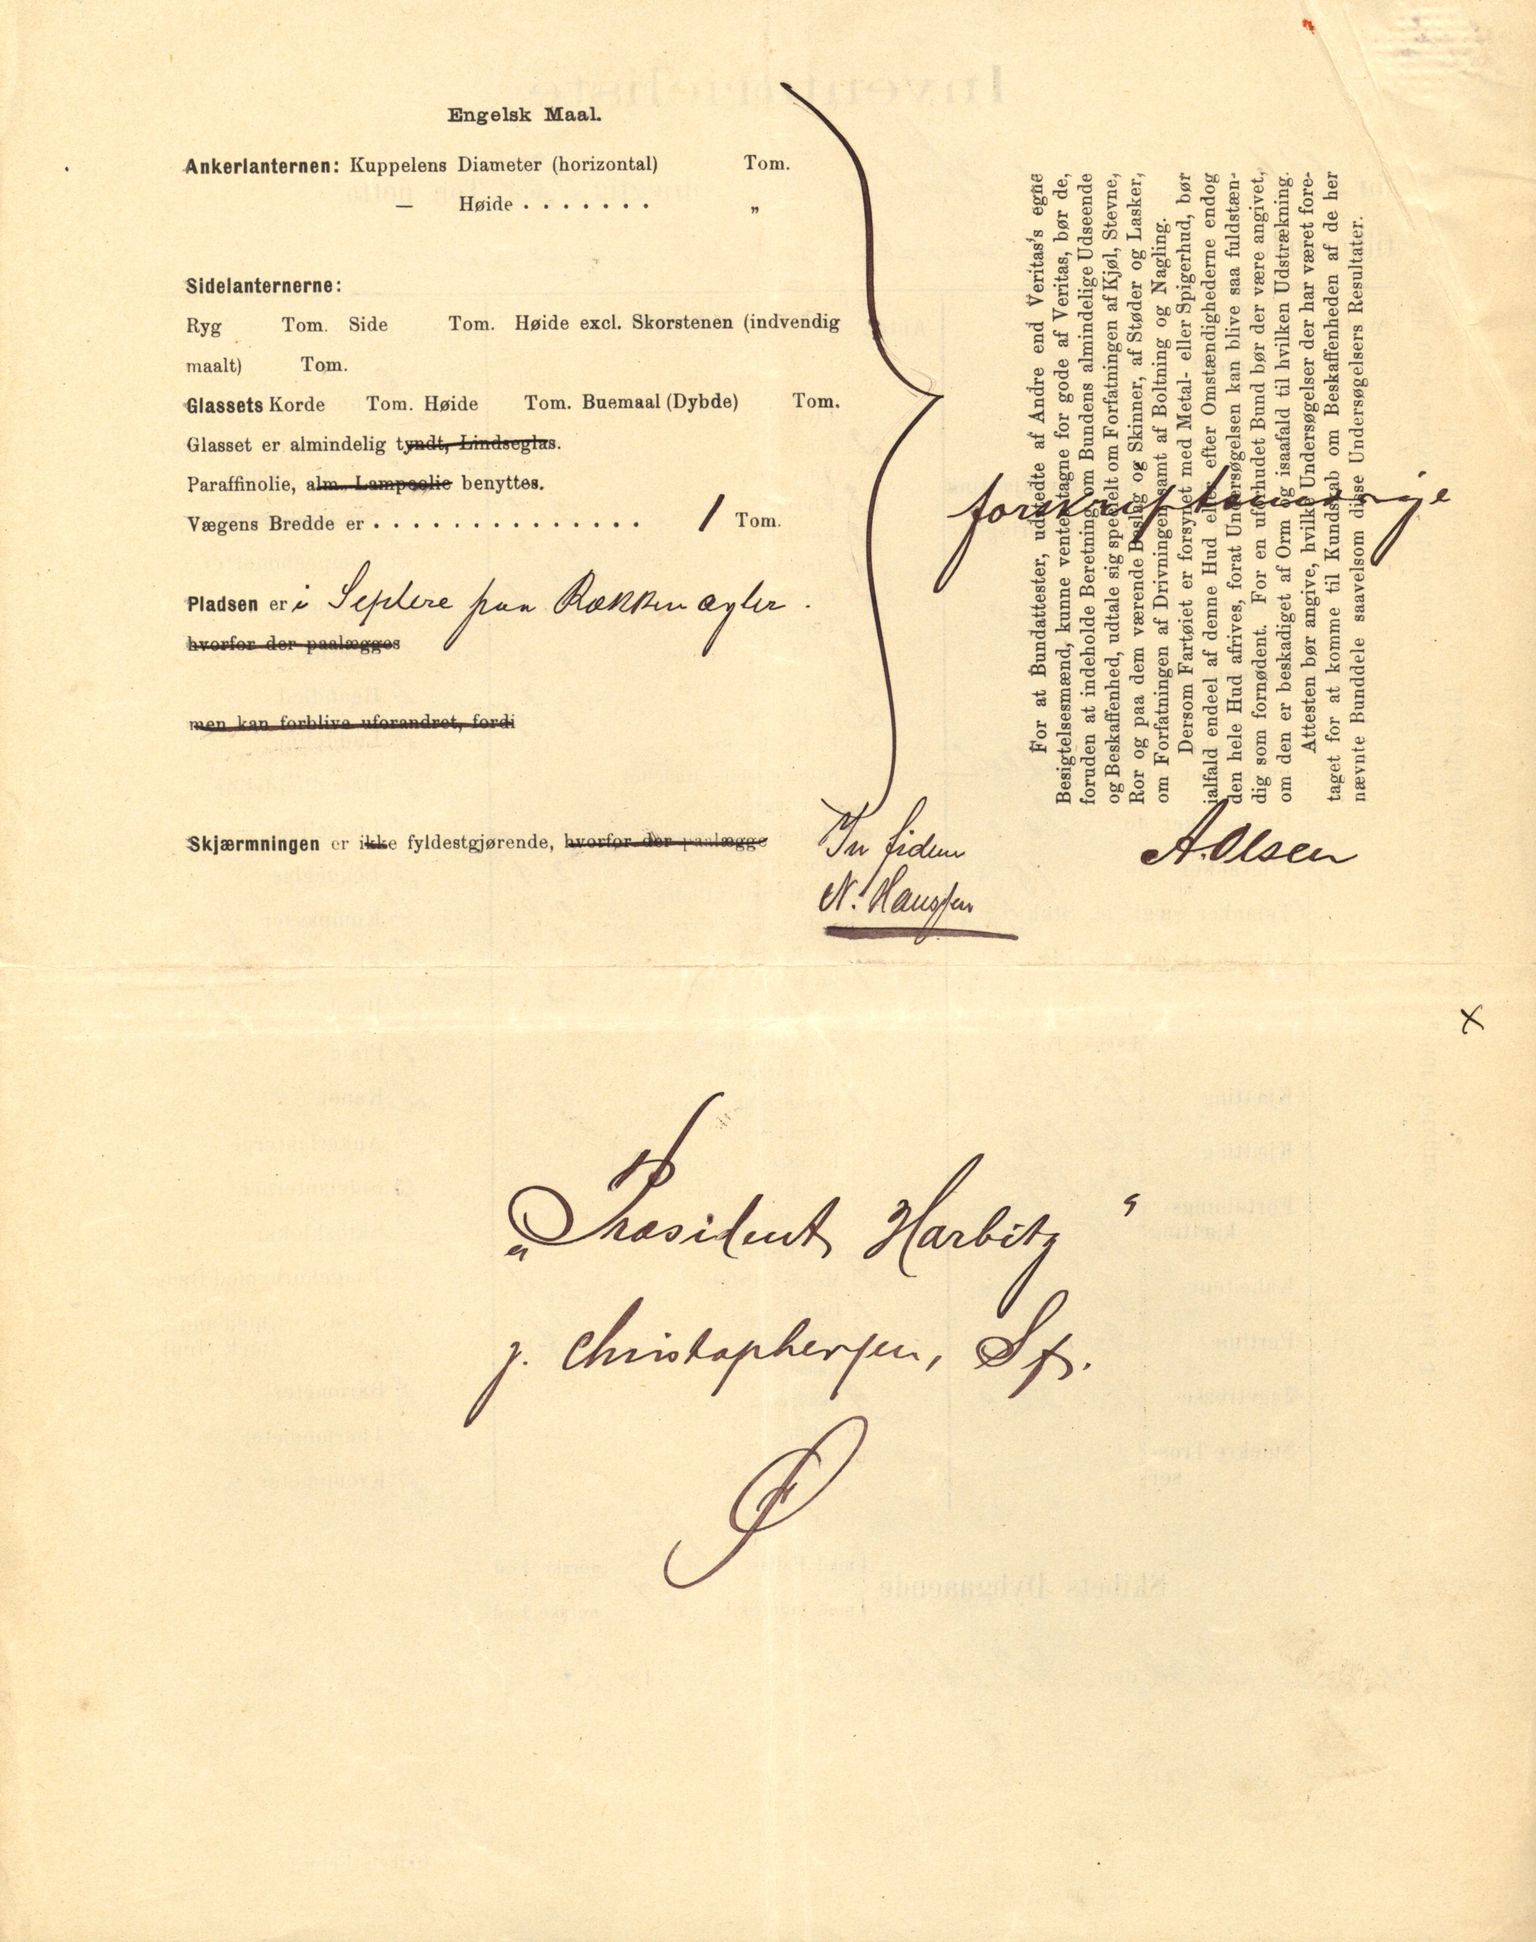 Engelsk Maal.
Ankerlanternen: Kuppelens Diameter (horizontal) Tom.
— Høide . . . . . . . „
Sidelanternerne:
Ryg Tom. Side Tom. Høide excl. Skorstenen (indvendig
maalt) Tom.
Glassets Korde Tom. Høide Tom. Buemaal (Dybde) Tom.
Glasset er almindelig tyndt, Lindseglas.
Paraffinolie, alm. Lampeolie benyttes.
Vægens Bredde er . . . . . . . . . . . . . . . 1 Tom.
Pladsen er i Septere paa Rækken agter.
hvorfor der paalægges
men kan forblive uforandret, fordi
Skjærmningen er ikke fyldestgjørende, hvorfor der paalægge
forskriftsmæssige
For at Bundattester, udstedte af Andre end Veritas's egne
Besigtelsesmænd, kunne ventes tagne for gode af Veritas, bør de,
foruden at indeholde Beretning om Bundens almindelige Udseende
og Beskaffenhed, udtale sig specielt om Forfatningen af Kjøl, Stevne,
Ror og paa dem værende Beslag og Skinner, af Støder og Lasker,
om Forfatningen af Drivningen samt af Boltning og Nagling.
Dersom Fartøiet er forsynet med Metal- eller Spigerhud, bør
ialfald endeel af denne Hud eller efter Omstændighederne endog
den hele Hud afrives, forat Undersøgelsen kan blive saa fuldstæn-
dig som fornødent. For en uforhudet Bund bør der være angivet,
om den er beskadiget af Orm og isaafald til hvilken Udstrækning.
Attesten bør angive, hvilke Undersøgelser der har været fore-
taget for at komme til Kundskab om Beskaffenheden af de her
nævnte Bunddele saavelsom disse Undersøgelsers Resultater.
In fidem
N. Hanssen
A. Olsen
x
„Præsident Harbitz"
j. Christophersen, Sf.